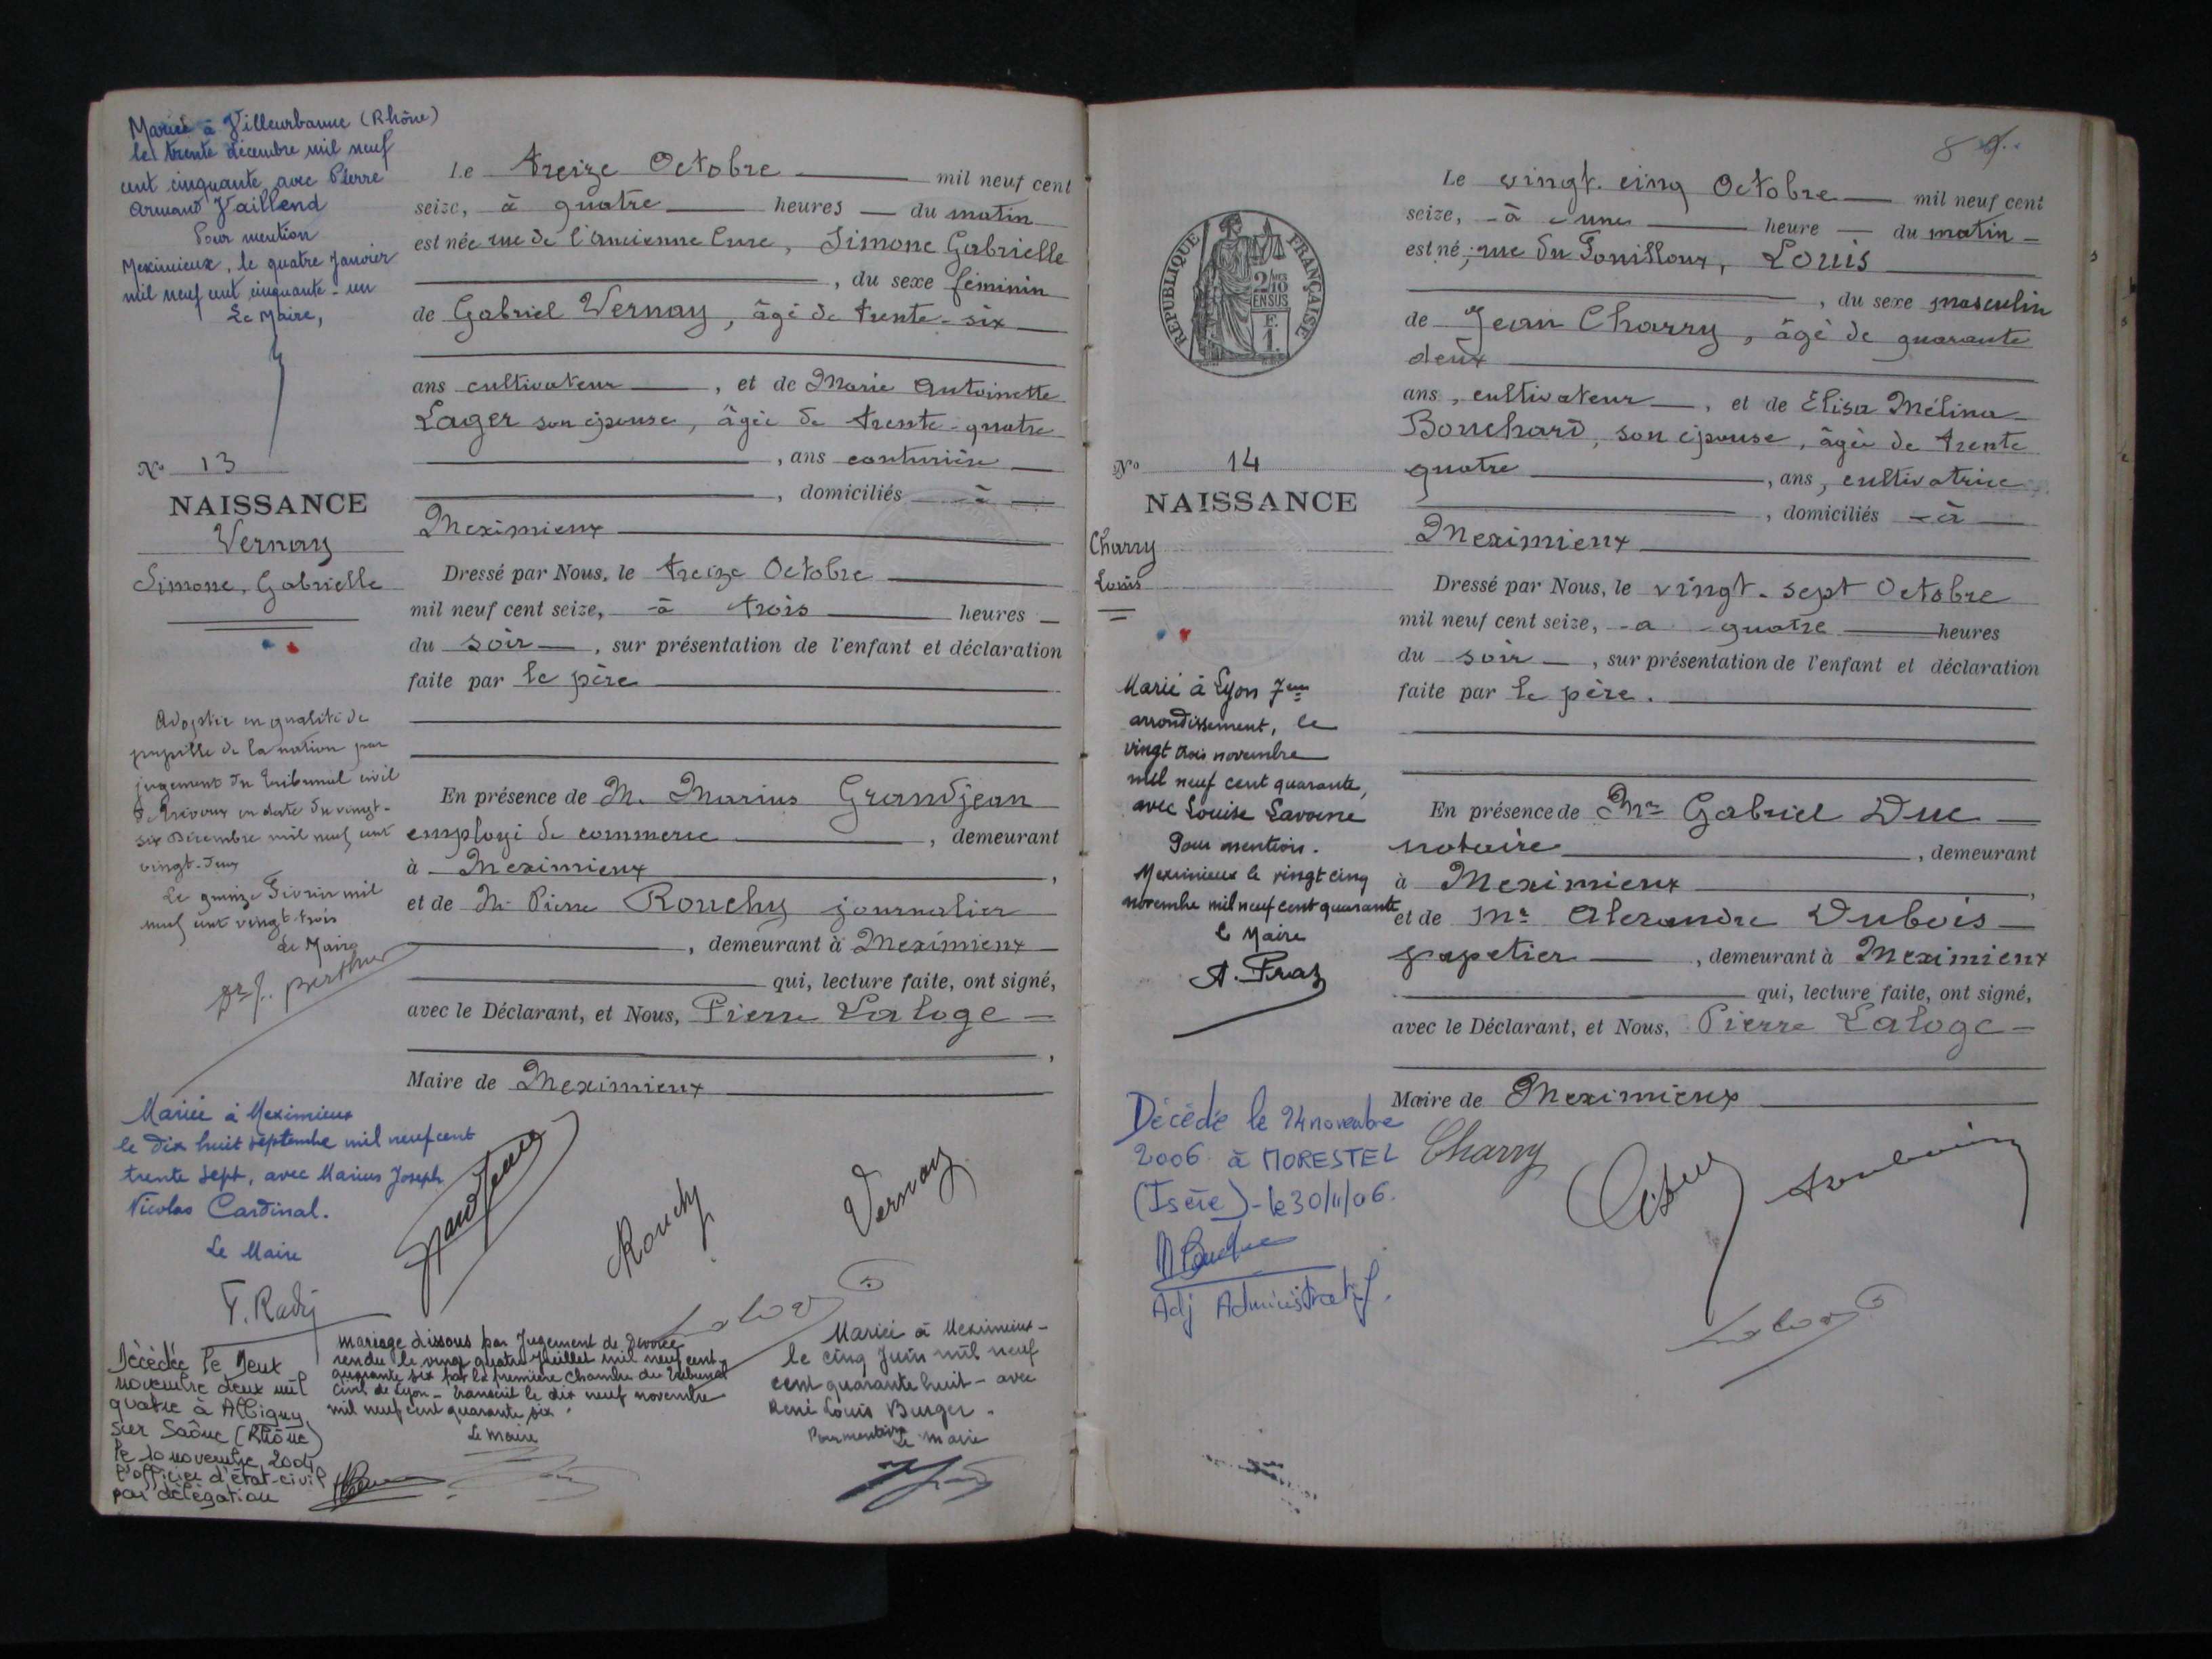 Mariée à Villeurbanne (Rhône)
le trente décembre mil neuf
cent cinquante avec Pierre
Armand Vaillend
Pour mention
Meximieux, le quatre Janvier
mil neuf cent cinquante-un
Le Maire,
N° 13
NAISSANCE
Vernay
Simone, Gabrielle
Adoptée en qualité de
pupille de la nation par
jugement du tribunal civil
de Trévoux en date du vingt-
six Décembre mil neuf cent
vingt-deux
Le quinze Février mil
neuf cent vingt trois
Le Maire
Dr J. Berthier
Mariée à Meximieux
le dix huit septembre mil neuf cent
trente sept, avec Marius Joseph
Nicolas Cardinal.
Le Maire
Décédée le deux
novembre deux mil
quatre à Albigny
sur Saône (Rhône)
le 10 novembre 2004
l'officier d'état-civil
par délégation
Le treize Octobre mil neuf cent
seize, à quatre heures du matin
est née rue de l'Ancienne Cure, Simone Gabrielle
, du sexe féminin
de Gabriel Vernay, âgé de trente-six
ans cultivateur, et de Marie Antoinette
Lager son épouse, âgée de trente-quatre
, ans couturière
, domiciliés à
Meximieux
Dressé par Nous, le treize Octobre
mil neuf cent seize, à trois heures
du soir, sur présentation de l'enfant et déclaration
faite par le père
En présence de M. Marius Grandjean
employé de commerce, demeurant
à Meximieux,
et de M. Pierre Rouchy journalier
, demeurant à Meximieux
qui, lecture faite, ont signé,
avec le Déclarant, et Nous, Pierre Laloge
,
Maire de Meximieux
Grandjean
Rouchy
Vernay
Laloge
mariage dissous par Jugement de divorce
rendu le vingt quatre Juillet mil neuf cent
quarante six par la première chambre du Tribunal
civil de Lyon - transcrit le dix neuf novembre
mil neuf cent quarante six.
Le maire
Mariée à Meximieux -
le cinq Juin mil neuf
cent quarante huit - avec
René Louis Burger.
Pour mention
Le Maire
8
REPUBLIQUE FRANÇAISE
2/10
EN SUS
F.
1.
N° 14
NAISSANCE
Charry
Louis
Marié à Lyon 7eme
arrondissement, le
vingt trois novembre
mil neuf cent quarante,
avec Louise Lavoine
Pour mention.
Meximieux le vingt cinq
novembre mil neuf cent quarante
le Maire
A. Fraz
Décédé le 24 novembre
2006 à MORESTEL
(Isère) - le 30/11/06.
Adj Administratif.
Le vingt-cinq Octobre mil neuf cent
seize, à une heure du matin
est né, rue du Fouilloux, Louis
, du sexe masculin
de Jean Charry, âgé de quarante
deux
ans, cultivateur, et de Elisa Mélina
Bouchard, son épouse, âgée de trente
quatre, ans, cultivatrice
, domiciliés à
Meximieux
Dressé par Nous, le vingt-sept Octobre
mil neuf cent seize, a quatre heures
du soir, sur présentation de l'enfant et déclaration
faite par le père.
En présence de Mr Gabriel Duc
notaire, demeurant
à Meximieux,
et de Mr Alexandre Dubois
papetier, demeurant à Meximieux
qui, lecture faite, ont signé,
avec le Déclarant, et Nous, Pierre Laloge
Maire de Meximieux
Charry
Laloge